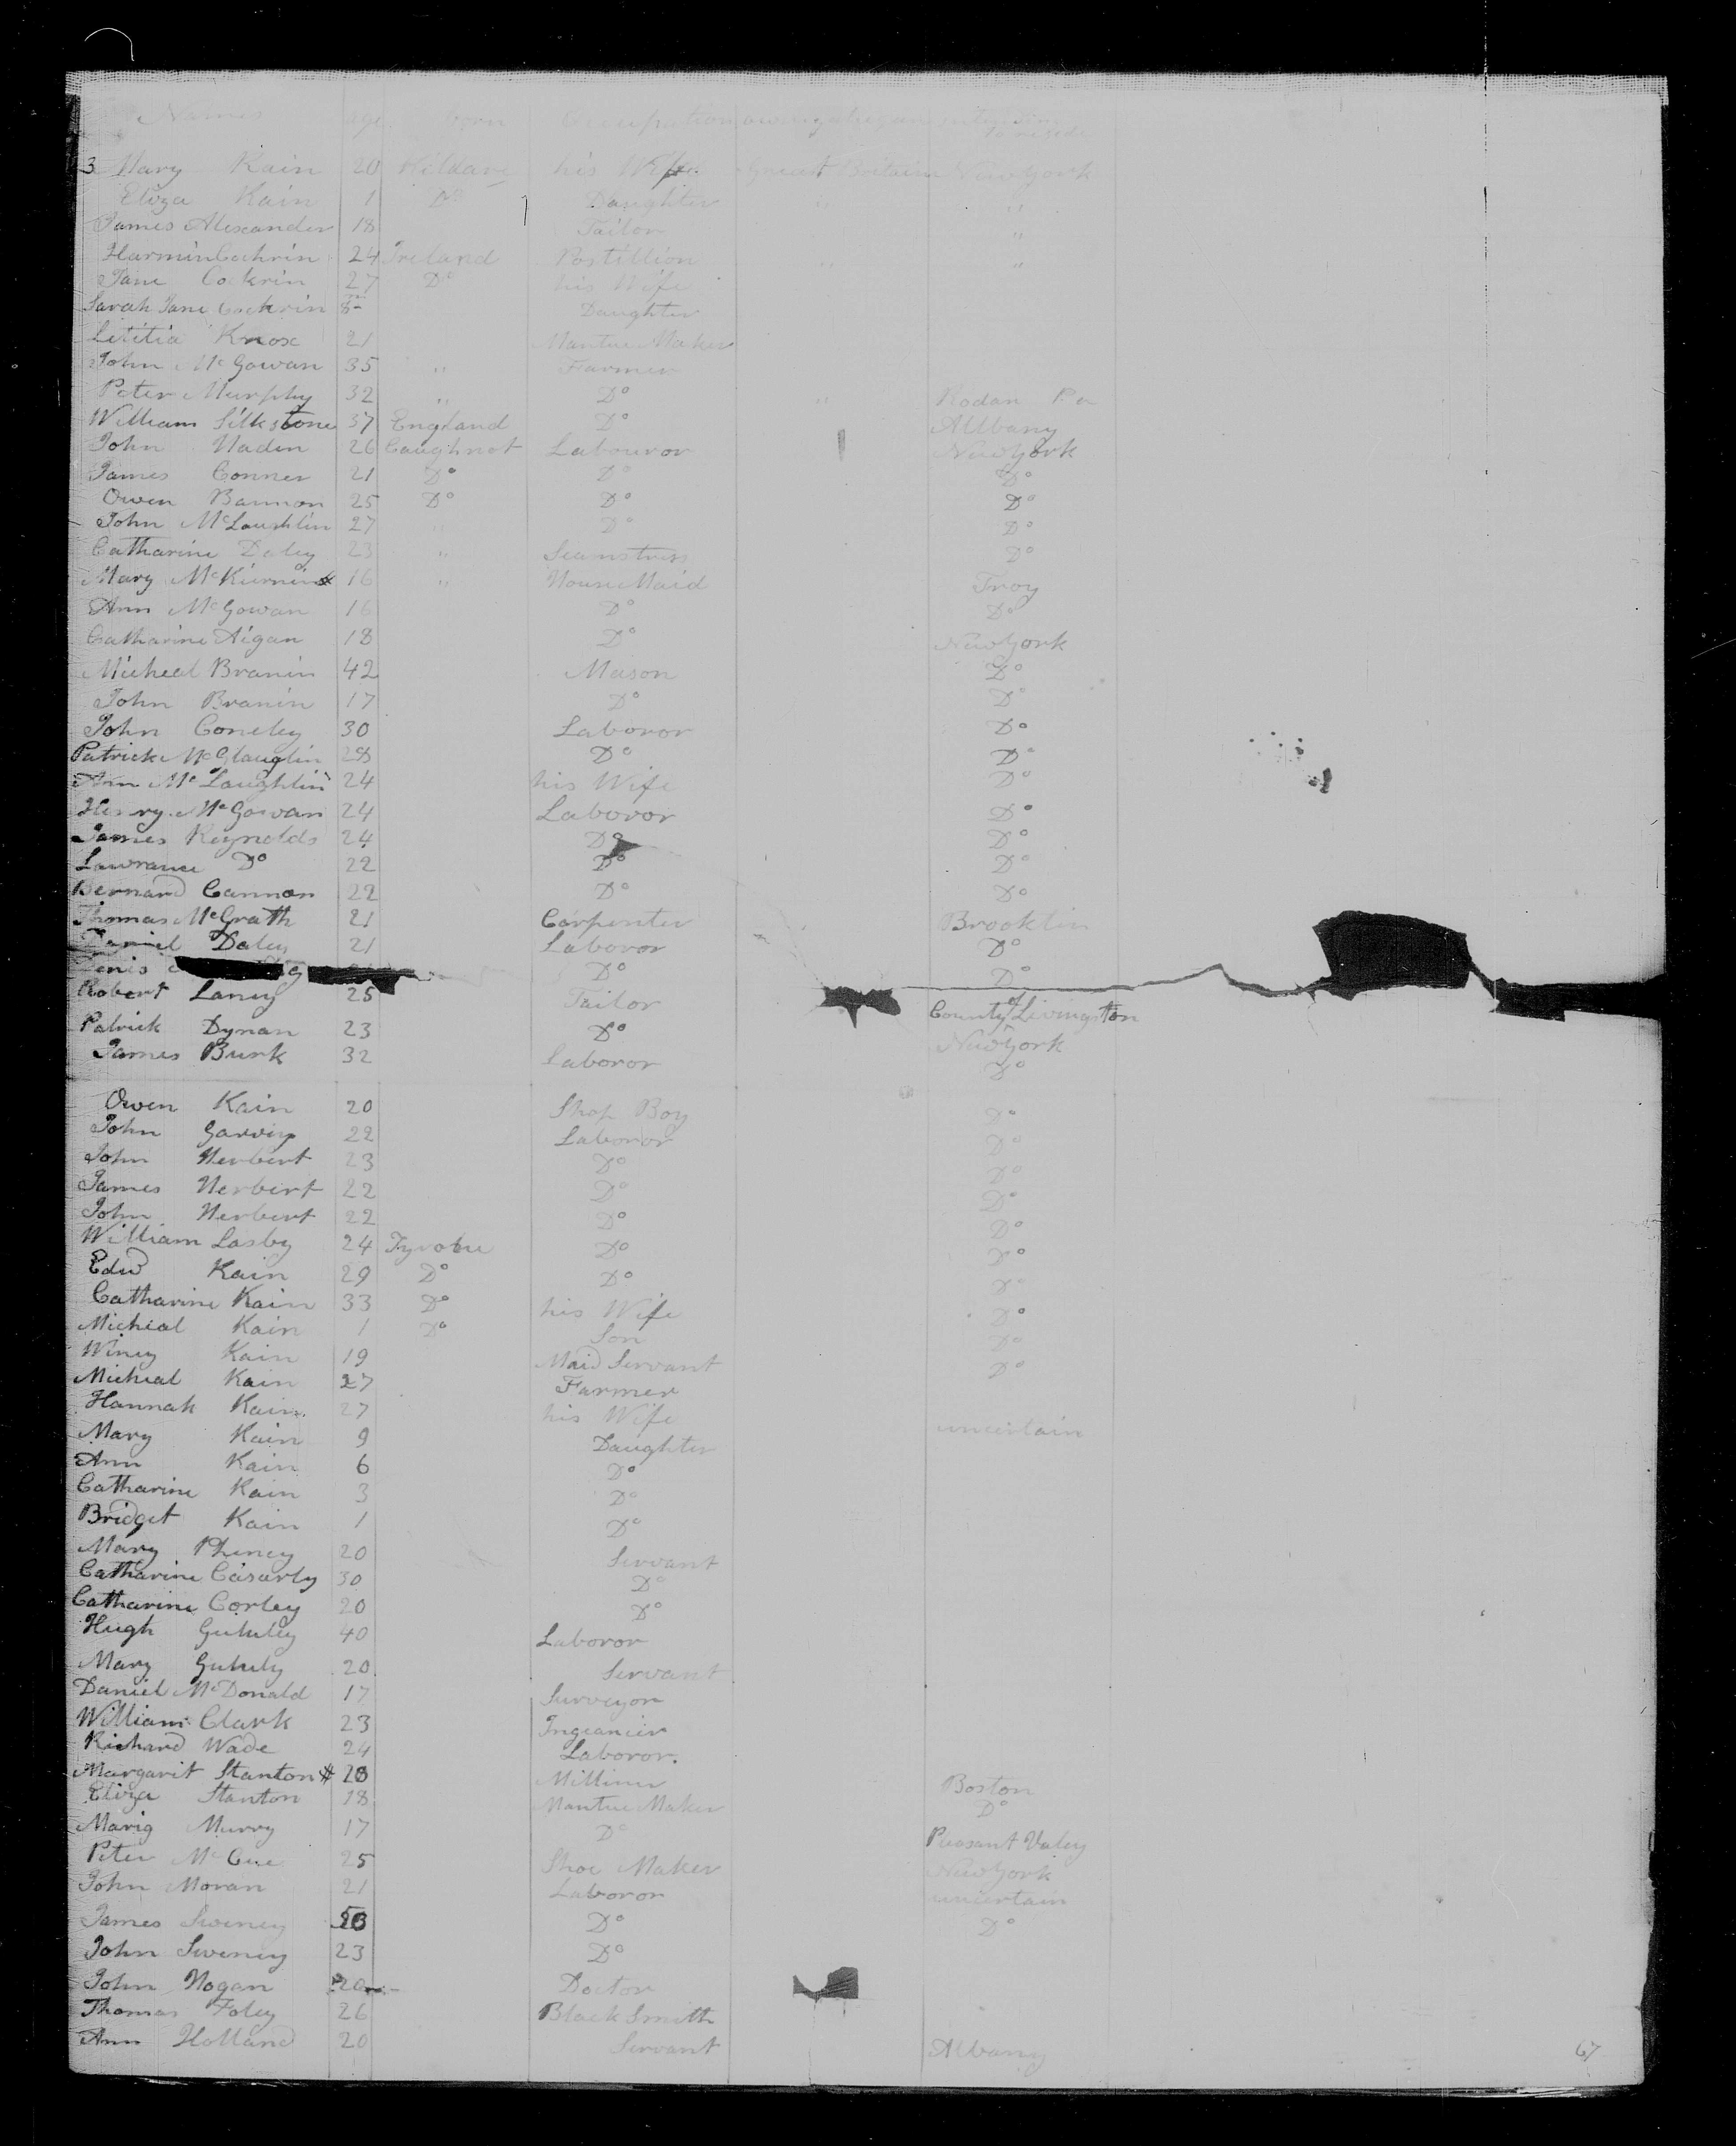 Names age born Occupation owing allegiance intention to reside
3 Mary Kain 20 Kildare his Wife Great Britain New York
Eliza Kain 1 Do Daughter " "
James Alexander 18 Tailor "
Harmin Cochrin 24 Ireland Postillion " "
Jane Cockrin 27 Do his Wife
Sarah Jane Cockrin Daughter
Letitia Knox 21 Mantue Maker
John McGowan 35 " Farmer
Peter Murphy 32 " Do " Rodan Pa
William Silkstone 37 England Do Allbany
John Hadin 26 Caughnot Labouror New York
James Conner 21 Do Do Do
Owen Bannon 25 Do Do Do
John McLaughlin 27 " Do Do
Catharine Daley 23 " Seamstress Do
Mary McKiernin 16 " House Maid Troy
Ann McGowan 16 Do Do
Catharine Aigan 18 Do New York
Micheal Branin 42 Mason Do
John Branin 17 Do Do
John Coneley 30 Laboror Do
Patrick McGlauglin 28 Do Do
Ann McLaughlin 24 his Wife Do
Henry McGowan 24 Laboror Do
James Reynolds 24 Do Do
Lawrance Do 22 Do Do
Bernard Cannon 22 Do Do
Thomas McGrath 21 Carpenter Brooklin
Daniel Daley 21 Laboror Do
Denis Do Do
Robert Laney 25 Tailor County of Livingston
Patrick Dynan 23 Do New York
James Burk 32 Laboror Do
Owen Kain 20 Shop Boy Do
John Garvin 22 Laboror Do
John Herbert 23 Do Do
James Herbert 22 Do Do
John Herbert 22 Do Do
William Lasby 24 Tyrone Do Do
Edwd Kain 29 Do Do Do
Catharine Kain 33 Do his Wife Do
Micheal Kain 1 Do Son Do
Winey Kain 19 Maid Servant Do
Micheal Kain 27 Farmer
Hannah Kain 27 his Wife uncertain
Mary Kain 9 Daughter
Ann Kain 6 Do
Catharine Kain 3 Do
Bridget Kain 1 Do
Mary Pheney 20 Servant
Catharine Casarly 30 Do
Catharine Corley 20 Do
Hugh Gululey 40 Laboror
Mary Gululy 20 Servant
Daniel McDonald 17 Surveyor
William Clark 23 Ingeanier
Richard Wade 24 Laboror
Margarit Stanton 20 Milliner Boston
Eliza Stanton 18 Mantue Maker Do
Marig Murry 17 Do Peasant Valey
Peter McCue 25 Shoe Maker New York
John Moran 21 Laboror uncertain
James Sweney Do Do
John Sweney 23 Do
John Hogan 20 Doctor
Thomas Foley 26 Black Smith
Ann Holland 20 Servant Albany
67